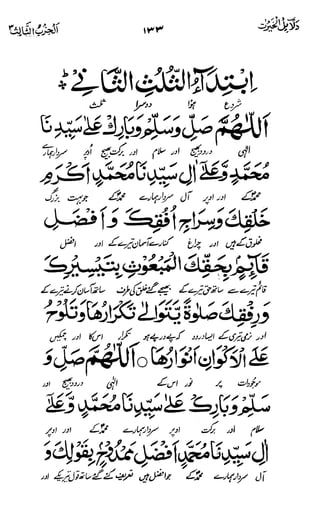 دلائل الخیرات ۱۳۳ الحزب الثالث
اِبْتِدَآءُ الثُّلُثِ الثَّانِيْ
شروع ہوا دوسرا ثلث
اَللّٰهُمَّ صَلِّ وَسَلِّمْ وَبَارِكْ عَلٰى سَيِّدِنَا
الٰہی درود بھیج اور سلام اور برکت بھیج اوپر سردار ہمارے
مُحَمَّدٍ وَّعَلٰٓى اٰلِ سَيِّدِنَا مُحَمَّدٍ اَكْرَمِ
محمد کے اور اوپر آل سردار ہمارے محمد کے جو بہت بزرگ
خَلْقِكَ وَسِرَاجِ اُفُقِكَ وَ اَفْضَلِ
مخلوق کے ہیں اور چراغ کنارے آسمان تیرے کے اور افضل
قَآئِمٍ بِحَقِّكَ الْمَبْعُوْثِ بِتَيْسِيْرِكَ
قائم تیرے سے ساتھ حق تیرے کے بھیجے گئے خلق کی طرف ساتھ آسان کرنے تیرے کے
وَرِفْقِكَ صَلٰوةً يَّتَوَالٰى تَكْرَارُهَا وَتَلُوْحُ
اور نرمی تیری کے ایسا درود کہ پے در پے ہو تکرار اس کا اور چمکیں
عَلَى الْاَكْوَانِ اَنْوَارُهَا ○ اَللّٰهُمَّ صَلِّ وَ
موجودات پر نور اس کے الٰہی درود بھیج اور
سَلِّمْ وَبَارِكْ عَلٰى سَيِّدِنَا مُحَمَّدٍ وَّعَلٰٓى
سلام اور برکت اوپر سردار ہمارے محمد کے اور اوپر
اٰلِ سَيِّدِنَا مُحَمَّدٍ اَفْضَلِ مَمْدُوْحٍ بِقَوْلِكَ وَ
آل سردار ہمارے محمد کے جو افضل ہیں تعریف کئے گئے ساتھ قول تیرے کے اور